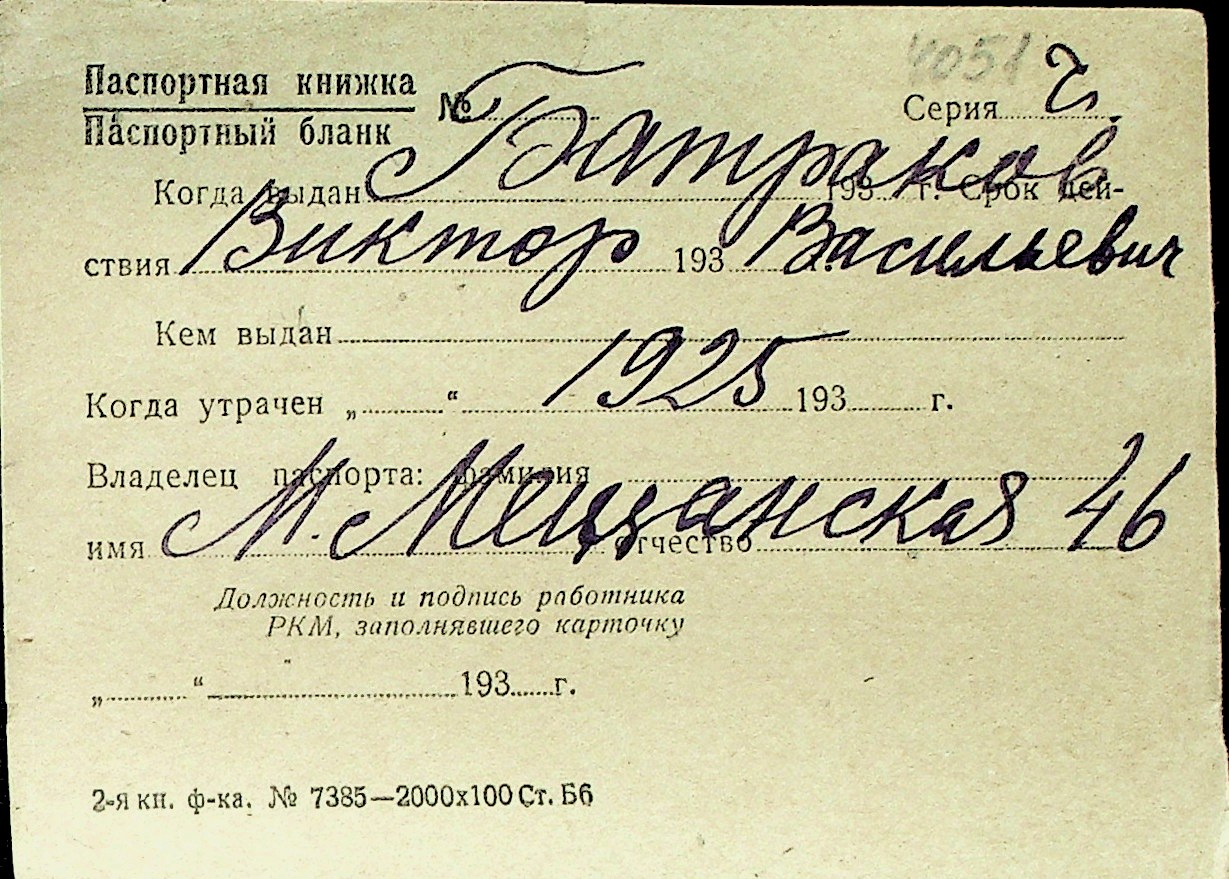 4051
Паспортная книжка
Паспортный бланк
№ Серия
Батраков
Когда выдан 193 г. Срок дей-
Виктор Васильевич
ствия 193 г.
Кем выдан
1925
Когда утрачен „ “ 193 г.
Владелец паспорта: фамилия
М. Мещанская 46
имя отчество
Должность и подпись работника
РКМ, заполнявшего карточку
„ “ 193 г.
2-я кн. ф-ка. № 7385—2000х100 Ст. Б6